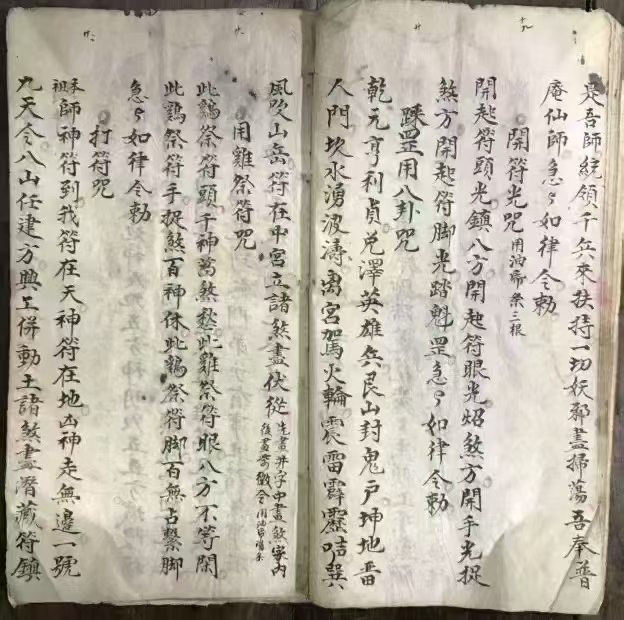 十九
是吾師統領千兵來扶持一切妖邪盡掃蕩吾奉普
庵仙師急〻如律令勅
開符光咒 用油帋条三根
開起符頭光鎮八方開起符眼光炤煞方開手光捉
煞方開起符脚光踏魁罡急〻如律令勅
踩罡用八卦咒
乾元亨利貞兌澤英雄兵艮山封鬼户坤地畨
人門坎水湧波濤离宮駕火輪震雷霹靂咭巽
風吹山岳符在中宮立諸煞盡伏從 先畫井字中畫煞字內
後畫令用油帋条
用雞祭符咒
此鷄祭符頭千神萬煞愁此雞祭符眼八方不等閑
此鷄祭符手捉煞百神休此鷄祭符脚百無占繫脚
急〻如律令勅
打符咒
本祖師神符到我符在天神符在地凶神走無邊一號
九天令八山任建方興工併動土諸煞盡潛藏符鎮